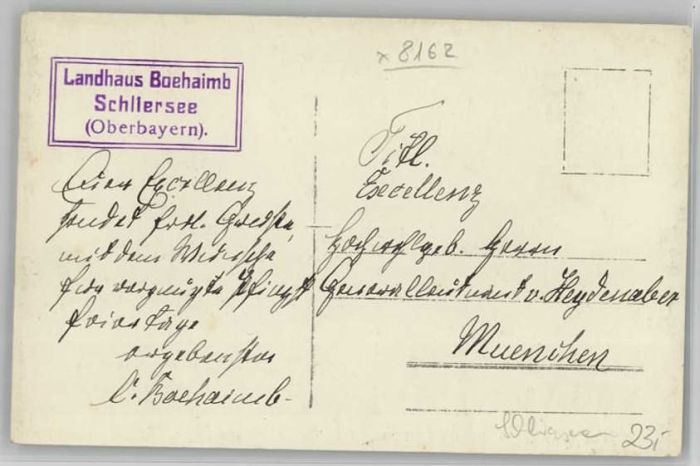 x 8162
Landhaus Boehaimb
Schliersee
(Oberbayern).
Euer Excellenz
sendet frdl. Gruesse,
mit dem Wunsche
frn vergnügte Pfingst
feiertage
ergebenster
C. Boehaimb.
Titl.
Excellenz
Hochwohlgeb. Herrn
Generalleutnant v. Heydenaber
Muenchen
Schliersee
23,-